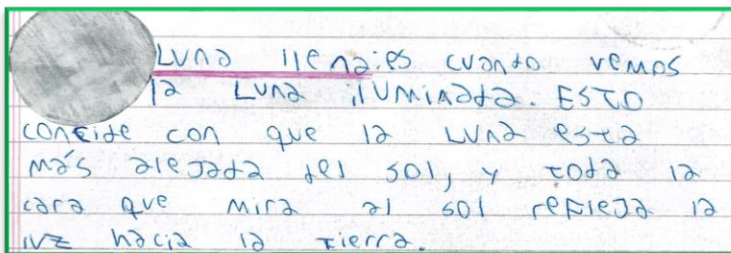 Luna llena: es cuando vemos
la Luna iluminada. ESTO
conside con que la Luna esta
más alejada del sol, y toda la
cara que mira al sol refleja la
luz hacia la tierra.